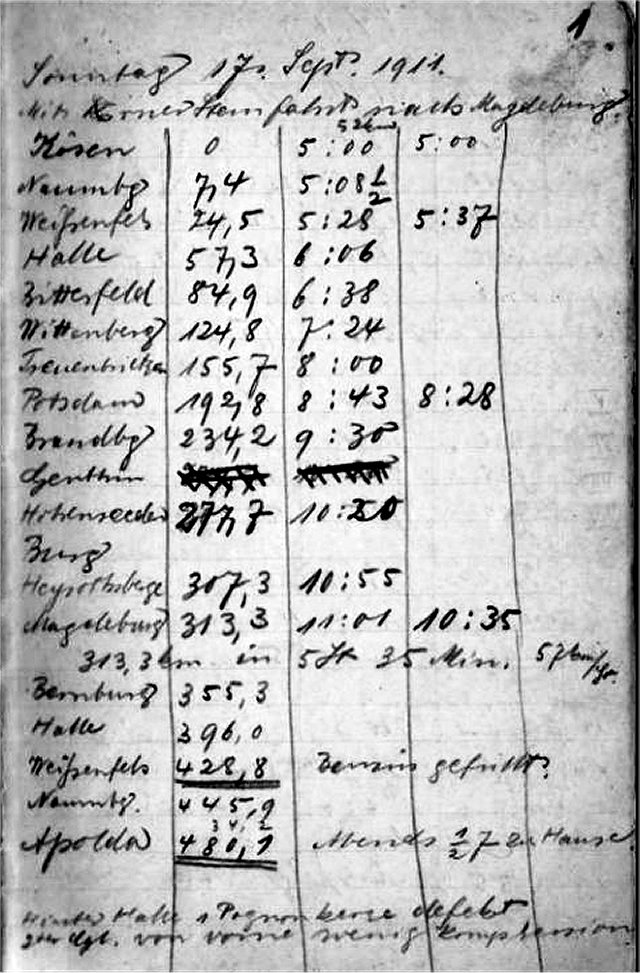 1.
Sonntag 17. Sept. 1911.
Mit nach Magdeburg.
52 km
Kösen 0 5:00 5:00
Naumbg 7,4 5:08 1/2
Weißenfels 24,5 5:28 5:37
Halle 57,3 6:06
Bitterfeld 84,9 6:38
Wittenberg 124,8 7:24
Treuenbrietzen 155,7 8:00
Potsdam 192,8 8:43 8:28
Brandbg 234,2 9:30
Genthin
Hohenseeden 277,7 10:20
Burg
Heyrothsberge 307,3 10:55
Magdeburg 313,3 11:01 10:35
313,3 km in 5 St 35 Min. 57 km/
Bernburg 355,3
Halle 396,0
Weißenfels 428,8 Benzin gefüllt.
Naumbg. 445,9
34,2
Apolda 480,1 Abends 1/2 7 zu Hause.
Hinter Halle 1 Pognonkerze defekt
2ter Cyl. von vorne wenig Kompression